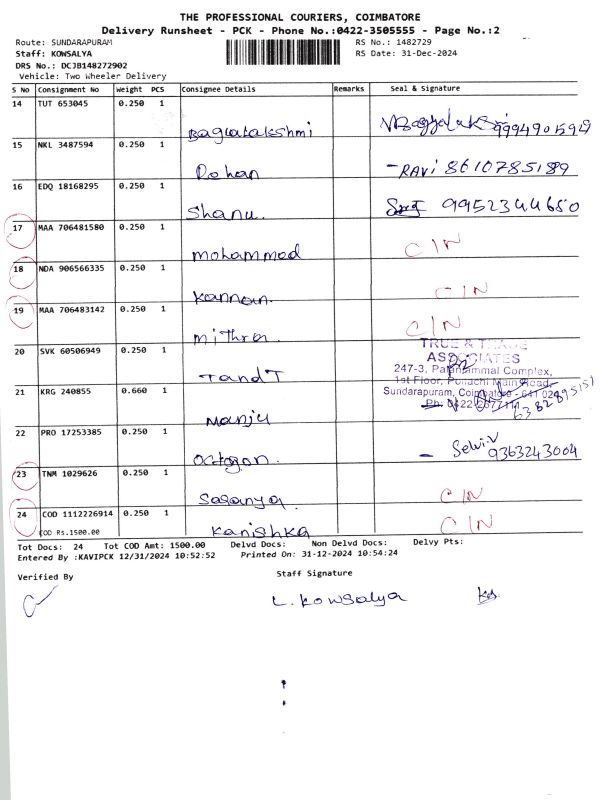 THE PROFESSIONAL COURIERS, COIMBATORE
Delivery Runsheet - PCK - Phone No.:0422-3505555 - Page No.:2
Route: SUNDARAPURAM
RS No.: 1482729
Staff: KOWSALYA
RS Date: 31-Dec-2024
DRS No.: DCJB148272902
Vehicle: Two Wheeler Delivery
S No Consignment No Weight PCS Consignee Details Remarks Seal & Signature
14 TUT 653045 0.250 1
Bagyalakshmi 9994905929
15 NKL 3487594 0.250 1
Rohan - RAVI 8610785189
16 EDQ 18168295 0.250 1
Shanu. 9952344650
17 MAA 706481580 0.250 1
mohammed C/N
18 NDA 906566335 0.250 1
Kannan. C/N
19 MAA 706483142 0.250 1
Mithra. C/N
20 SVK 60506949 0.250 1
TandT
TRUE & TRADE
ASSOCIATES
247-3, Palaniammal Complex,
1st Floor, Pollachi Main Road,
Sundarapuram, Coimbatore - 641 024
21 KRG 240855 0.660 1
Manju 6382895151
22 PRO 17253385 0.250 1
Octogon. - Selvi.V 9363243004
23 TNM 1029626 0.250 1
Saranya. C/N
24 COD 1112226914 0.250 1
COD Rs.1500.00
Kanishka C/N
Tot Docs: 24 Tot COD Amt: 1500.00 Delvd Docs: Non Delvd Docs: Delvy Pts:
Entered By :KAVIPCK 12/31/2024 10:52:52 Printed On: 31-12-2024 10:54:24
Verified By
Staff Signature
L. Kowsalya